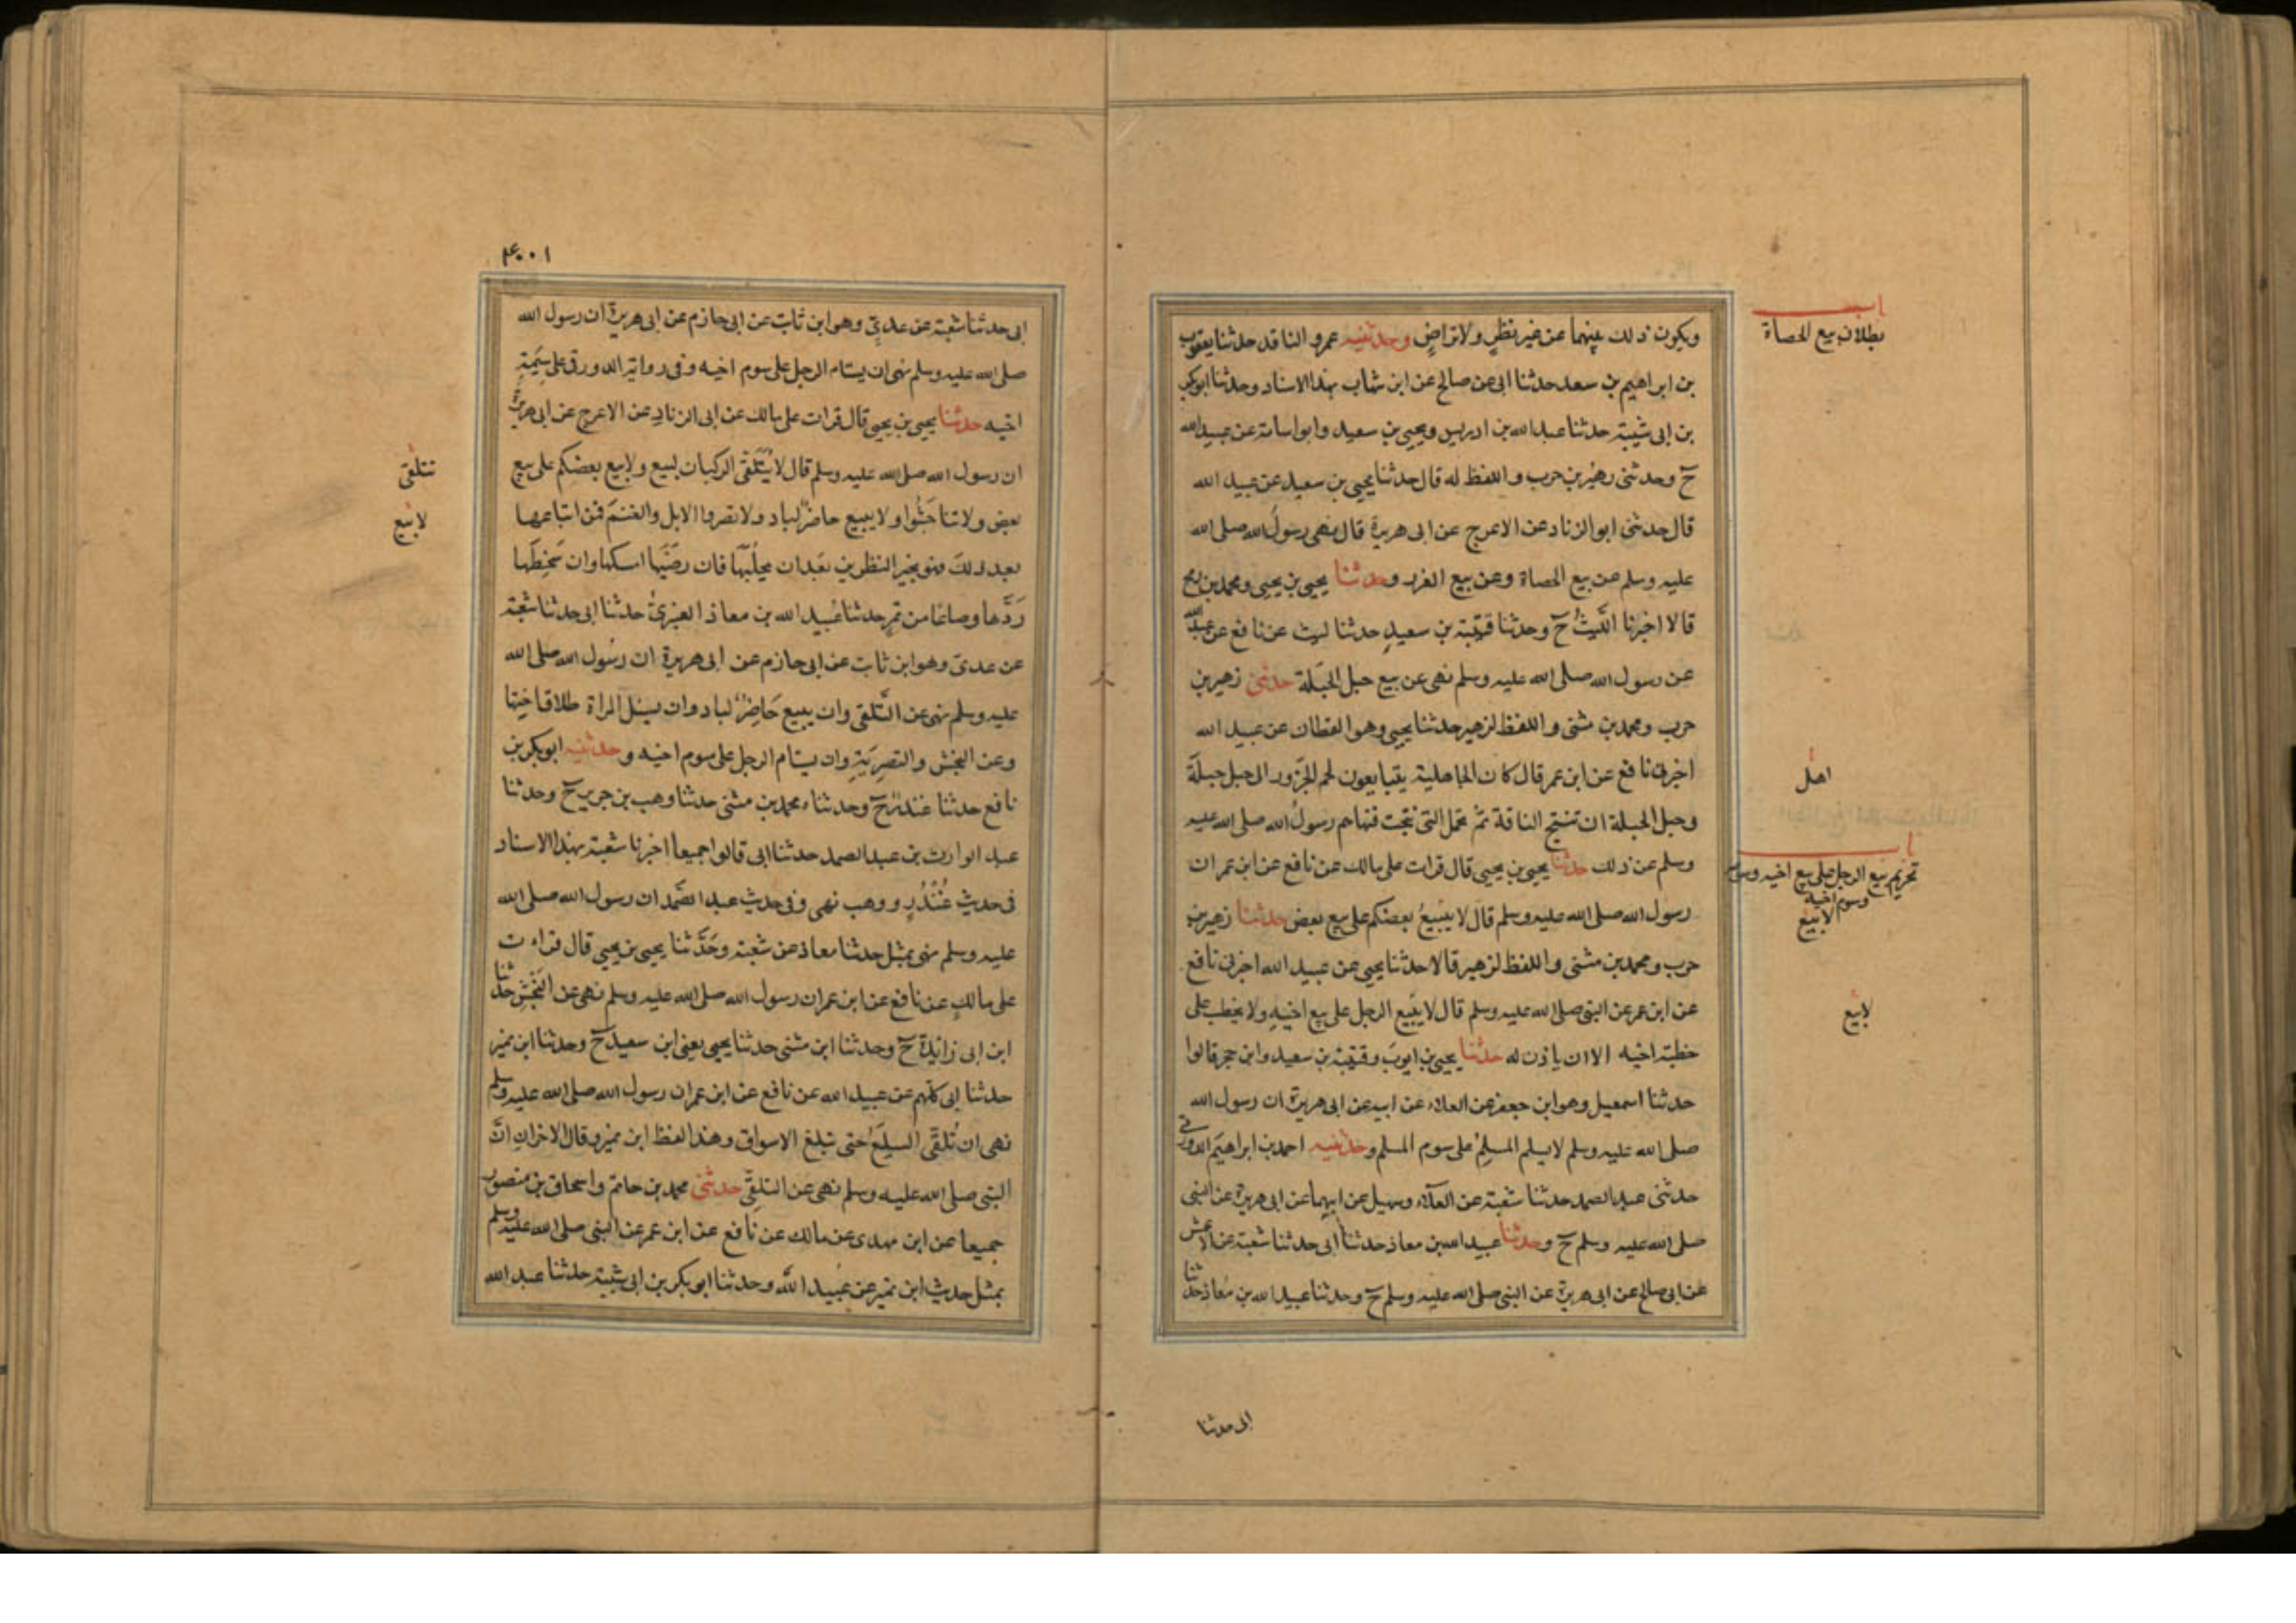 ويكون ذلك بينهما عن غير نظر ولا تراضٍ وحدثنيه عمرو الناقد حدثنا يعقوب
بن ابراهيم بن سعد حدثنا ابى عن صالح عن ابن شهاب بهذا الاسناد وحدثنا ابوبكر
بن ابى شيبة حدثنا عبد الله بن ادريس ويحيى بن سعيد وابو اسامة عن عبيد الله
ح وحدثنى زهير بن حرب واللفظ له قال حدثنا يحيى بن سعيد عن عبيد الله
قال حدثنى ابو الزناد عن الاعرج عن ابى هريرة قال نهى رسول الله صلى الله
عليه وسلم عن بيع الحصاة وعن بيع الغرر وحدثنا يحيى بن يحيى ومحمد بن رمح
قالا اخبرنا الليث ح وحدثنا قتيبة بن سعيد حدثنا ليث عن نافع عن عبد الله
عن رسول الله صلى الله عليه وسلم نهى عن بيع حبل الحَبَلة حدثنى زهير بن
حرب ومحمد بن مثنى واللفظ لزهير حدثنا يحيى وهو القطان عن عبيد الله
اخبرنى نافع عن ابن عمر قال كان الجاهلية يتبايعون لحم الجَزور الى حبل حبلة
وحبل الحبلة ان تنتج الناقة ثم تحمل التى نتجت فنهاهم رسولُ الله صلى الله عليه
وسلم عن ذلك حدثنا يحيى بن يحيى قال قرات على مالك عن نافع عن ابن عمر ان
رسول الله صلى الله عليه وسلم قال لا يبيعُ بعضكم على بيع بعض حدثنا زهير بن
حرب ومحمد بن مثنى واللفظ لزهير قالا حدثنا يحيى عن عبيد الله اخبرنى نافع
عن ابن عمر عن النبى صلى الله عليه وسلم قال لا يبيع الرجل على بيع اخيه ولا يخطب على
خطبة اخيه الا ان ياذن له حدثنا يحيى بن ايوب وقتيبة بن سعيد وابن حجر قالوا
حدثنا اسمعيل وهو ابن جعفر عن العلاء عن ابيه عن ابى هريرة ان رسول الله
صلى الله عليه وسلم لا يسلم المسلم على سوم المسلم وحدثنيه احمد بن ابراهيم الدورقى
حدثنى عبد الصمد حدثنا شعبة عن العلاء وسهيل عن ابيهما عن ابى هريرة عن النبى
صلى الله عليه وسلم ح وحدثنا عبيد الله بن معاذ حدثنا ابى حدثنا شعبة عن الاعمش
عن ابى صالح عن ابى هريرة عن النبى صلى الله عليه وسلم ح وحدثنا عبيد الله بن معاذ حدثنا
ابى حدثنا
بطلان بيع الحصاة
اهل
تحريم بيع الرجل على بيع اخيه
وسوم اخيه
لا يبيع
لا يبيع
١٠٠٤
ابى حدثنا شعبة عن عدىٍّ وهو ابن ثابت عن ابى حازم عن ابى هريرة ان رسول الله
صلى الله عليه وسلم نهى ان يستام الرجل على سوم اخيه وفى رواية الدورقى على سِيمَةِ
اخيه حدثنا يحيى بن يحيى قال قرات على مالك عن ابى الزناد عن الاعرج عن ابى هريرة
ان رسول الله صلى الله عليه وسلم قال لا يُتَلَقَّى الركبان لبيع ولا يبع بعضكم على بيع
بعض ولا تناجَشُوا ولا يبيع حاضرٌ لباد ولا تصروا الابل والغنم فمن ابتاعها
بعد ذلك فهو بخير النظرين بَعدان يحلُبَها فان رضيَها امسكها وان سَخِطَها
رَدَّها وصاعا من تمرٍ حدثنا عُبيد الله بن معاذ العنبرىُّ حدثنا ابى حدثنا شعبة
عن عدى وهو ابن ثابت عن ابى حازم عن ابى هريرة ان رسول الله صلى الله
عليه وسلم نهى عن التَّلقى وان يبيع حَاضِرٌ لباد وان يسئل المراة طلاق اختها
وعن النجش والتصرِيَةِ وان يستام الرجل على سوم اخيه وحدثنيه ابوبكر بن
نافع حدثنا غندرٌ ح وحدثناه محمد بن مثنى حدثنا وهب بن جرير ح وحدثنا
عبد الوارث بن عبد الصمد حدثنا ابى قالوا جميعا اخبرنا شعبة بهذا الاسناد
فى حديث غُنْدُرٍ ووهب نهى وفى حديث عبد الصَّمد ان رسول الله صلى الله
عليه وسلم نهى بمثل حدثنا معاذ عن شعبة وحَدَّثنا يحيى بن يحيى قال قراءت
على مالكٍ عن نافع عن ابن عمر ان رسول الله صلى الله عليه وسلم نهى عن النَجْشِ حدثنا
ابن ابى زايدة ح وحدثنا ابن مثنى حدثنا يحيى يعنى ابن سعيد ح وحدثنا ابن نمير
حدثنا ابى كلهم عن عبيد الله عن نافع عن ابن عمر ان رسول الله صلى الله عليه وسلم
نهى ان تُلقَّى السِلَعُ حتى تبلغ الاسواق وهذا لفظ ابن نمير وقال الاخران انَّ
النبى صلى الله عليه وسلم نهى عن التلقِّى حدثنى محمد بن حاتم واسحاق بن منصور
جميعا عن ابن مهدى عن مالك عن نافع عن ابن عمر عن النبى صلى الله عليه وسلم
بمثل حديث ابن نمير عن عُبيد الله وحدثنا ابوبكر بن ابى شيبة حدثنا عبد الله
تتلقى
لا يبيع